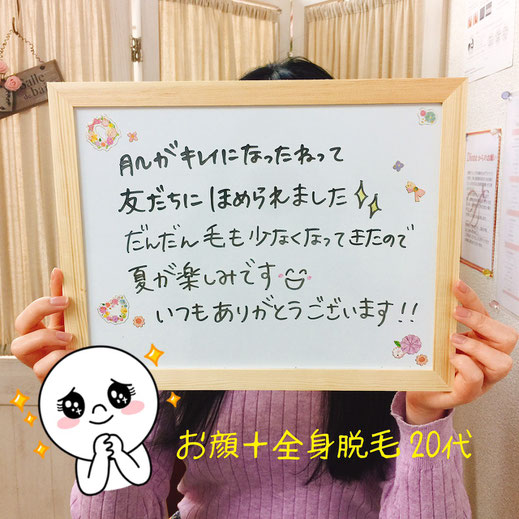 肌がキレイになったねって
友だちにほめられました
だんだん毛も少なくなってきたので
夏が楽しみです
いつもありがとうございます!!
お顔+全身脱毛 20代